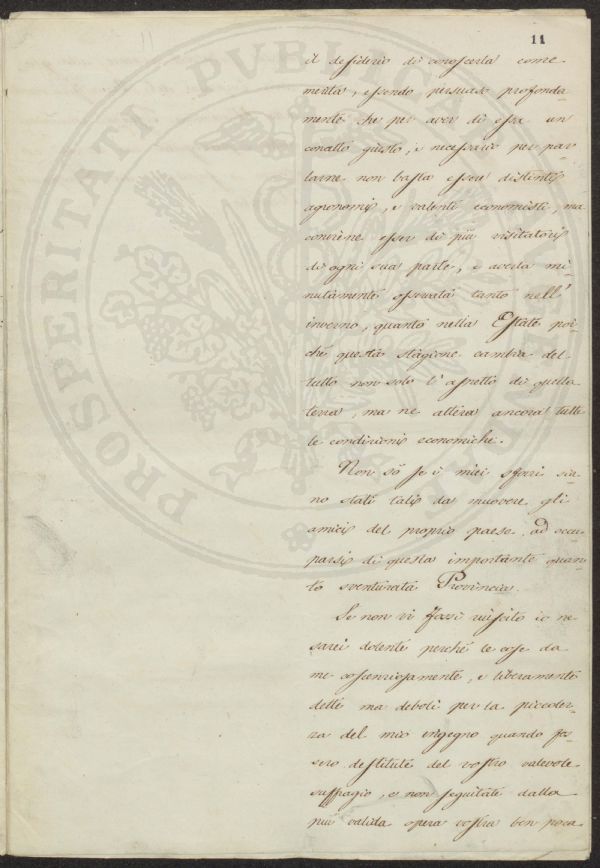 11
il desiderio di conoscerla come
merita, essendo persuaso profonda-
mente che per aver di essa un
concetto giusto, e necessario per par
larne non basta essere distinti
agronomi, e valenti economisti, ma
conviene esser di più visitatori
di ogni sua parte, e averla mi-
nutamente osservata tanto nell'
inverno, quanto nella Estate poi-
ché questa stagione cambia del
tutto non solo l'aspetto di quella
terra, ma ne altera ancora tutte
le condizioni economiche.
Non sò se i miei sforzi sia-
no stati tali da muovere gli
amici del proprio paese, ad occu-
parsi di questa importante quan-
to sventurata Provincia.
Se non vi fossi riuscito io ne
sarei dolente perché le cose da
me coscenziosamente, e liberamente
dette ma deboli per la piccolez-
za del mio ingegno quando fos-
sero destitute del vostro valevole
suffragio, e non seguitate dalla
più valida opera vostra ben poca
PROSPERITATI PUBLICAE